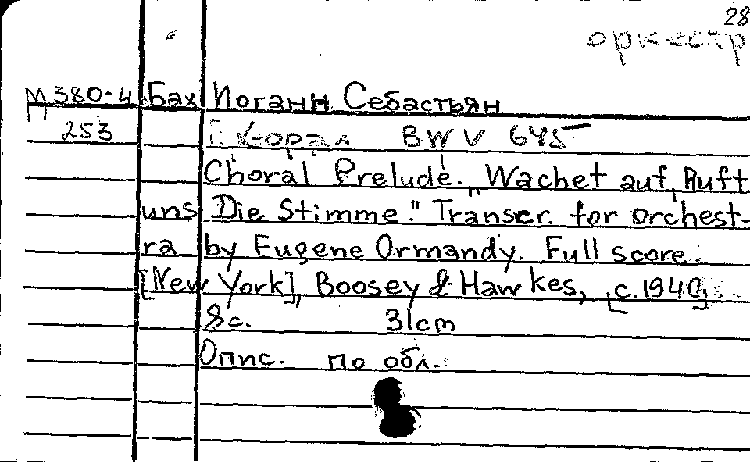 28
оркестр
М380-4 Бах Иоганн Себастьян
253 Хорал BWV 645
Choral Prelude. "Wachet auf, Ruft
uns Die Stimme." Transcr. for orchest-
ra by Eugene Ormandy. Full score.
[New York], Boosey & Hawkes, [c.1940].
8с. 31cm
Опис. по обл.